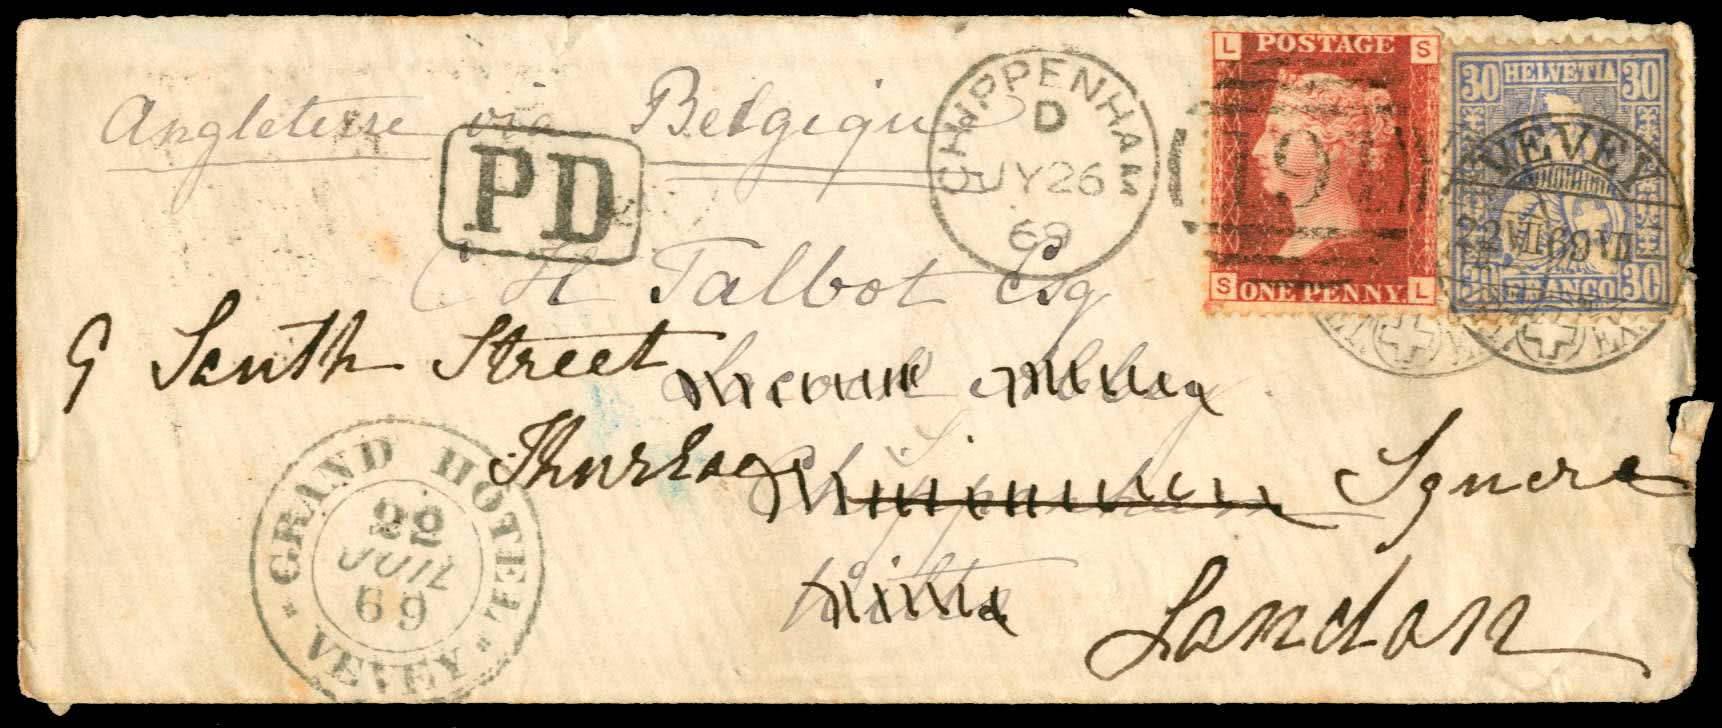 Angleterre via Belgique
PD
CHIPPENHAM
D
JY 26
69
L POSTAGE S
191
S ONE PENNY L
30 HELVETIA 30
VEVEY
22 VII 69 VII
30 FRANCO 30
C H Talbot Esq
9 South Street
Lacock Abbey
Thurloe Square
Chippenham
Wilts
London
GRAND HOTEL
22
JUIL
69
VEVEY